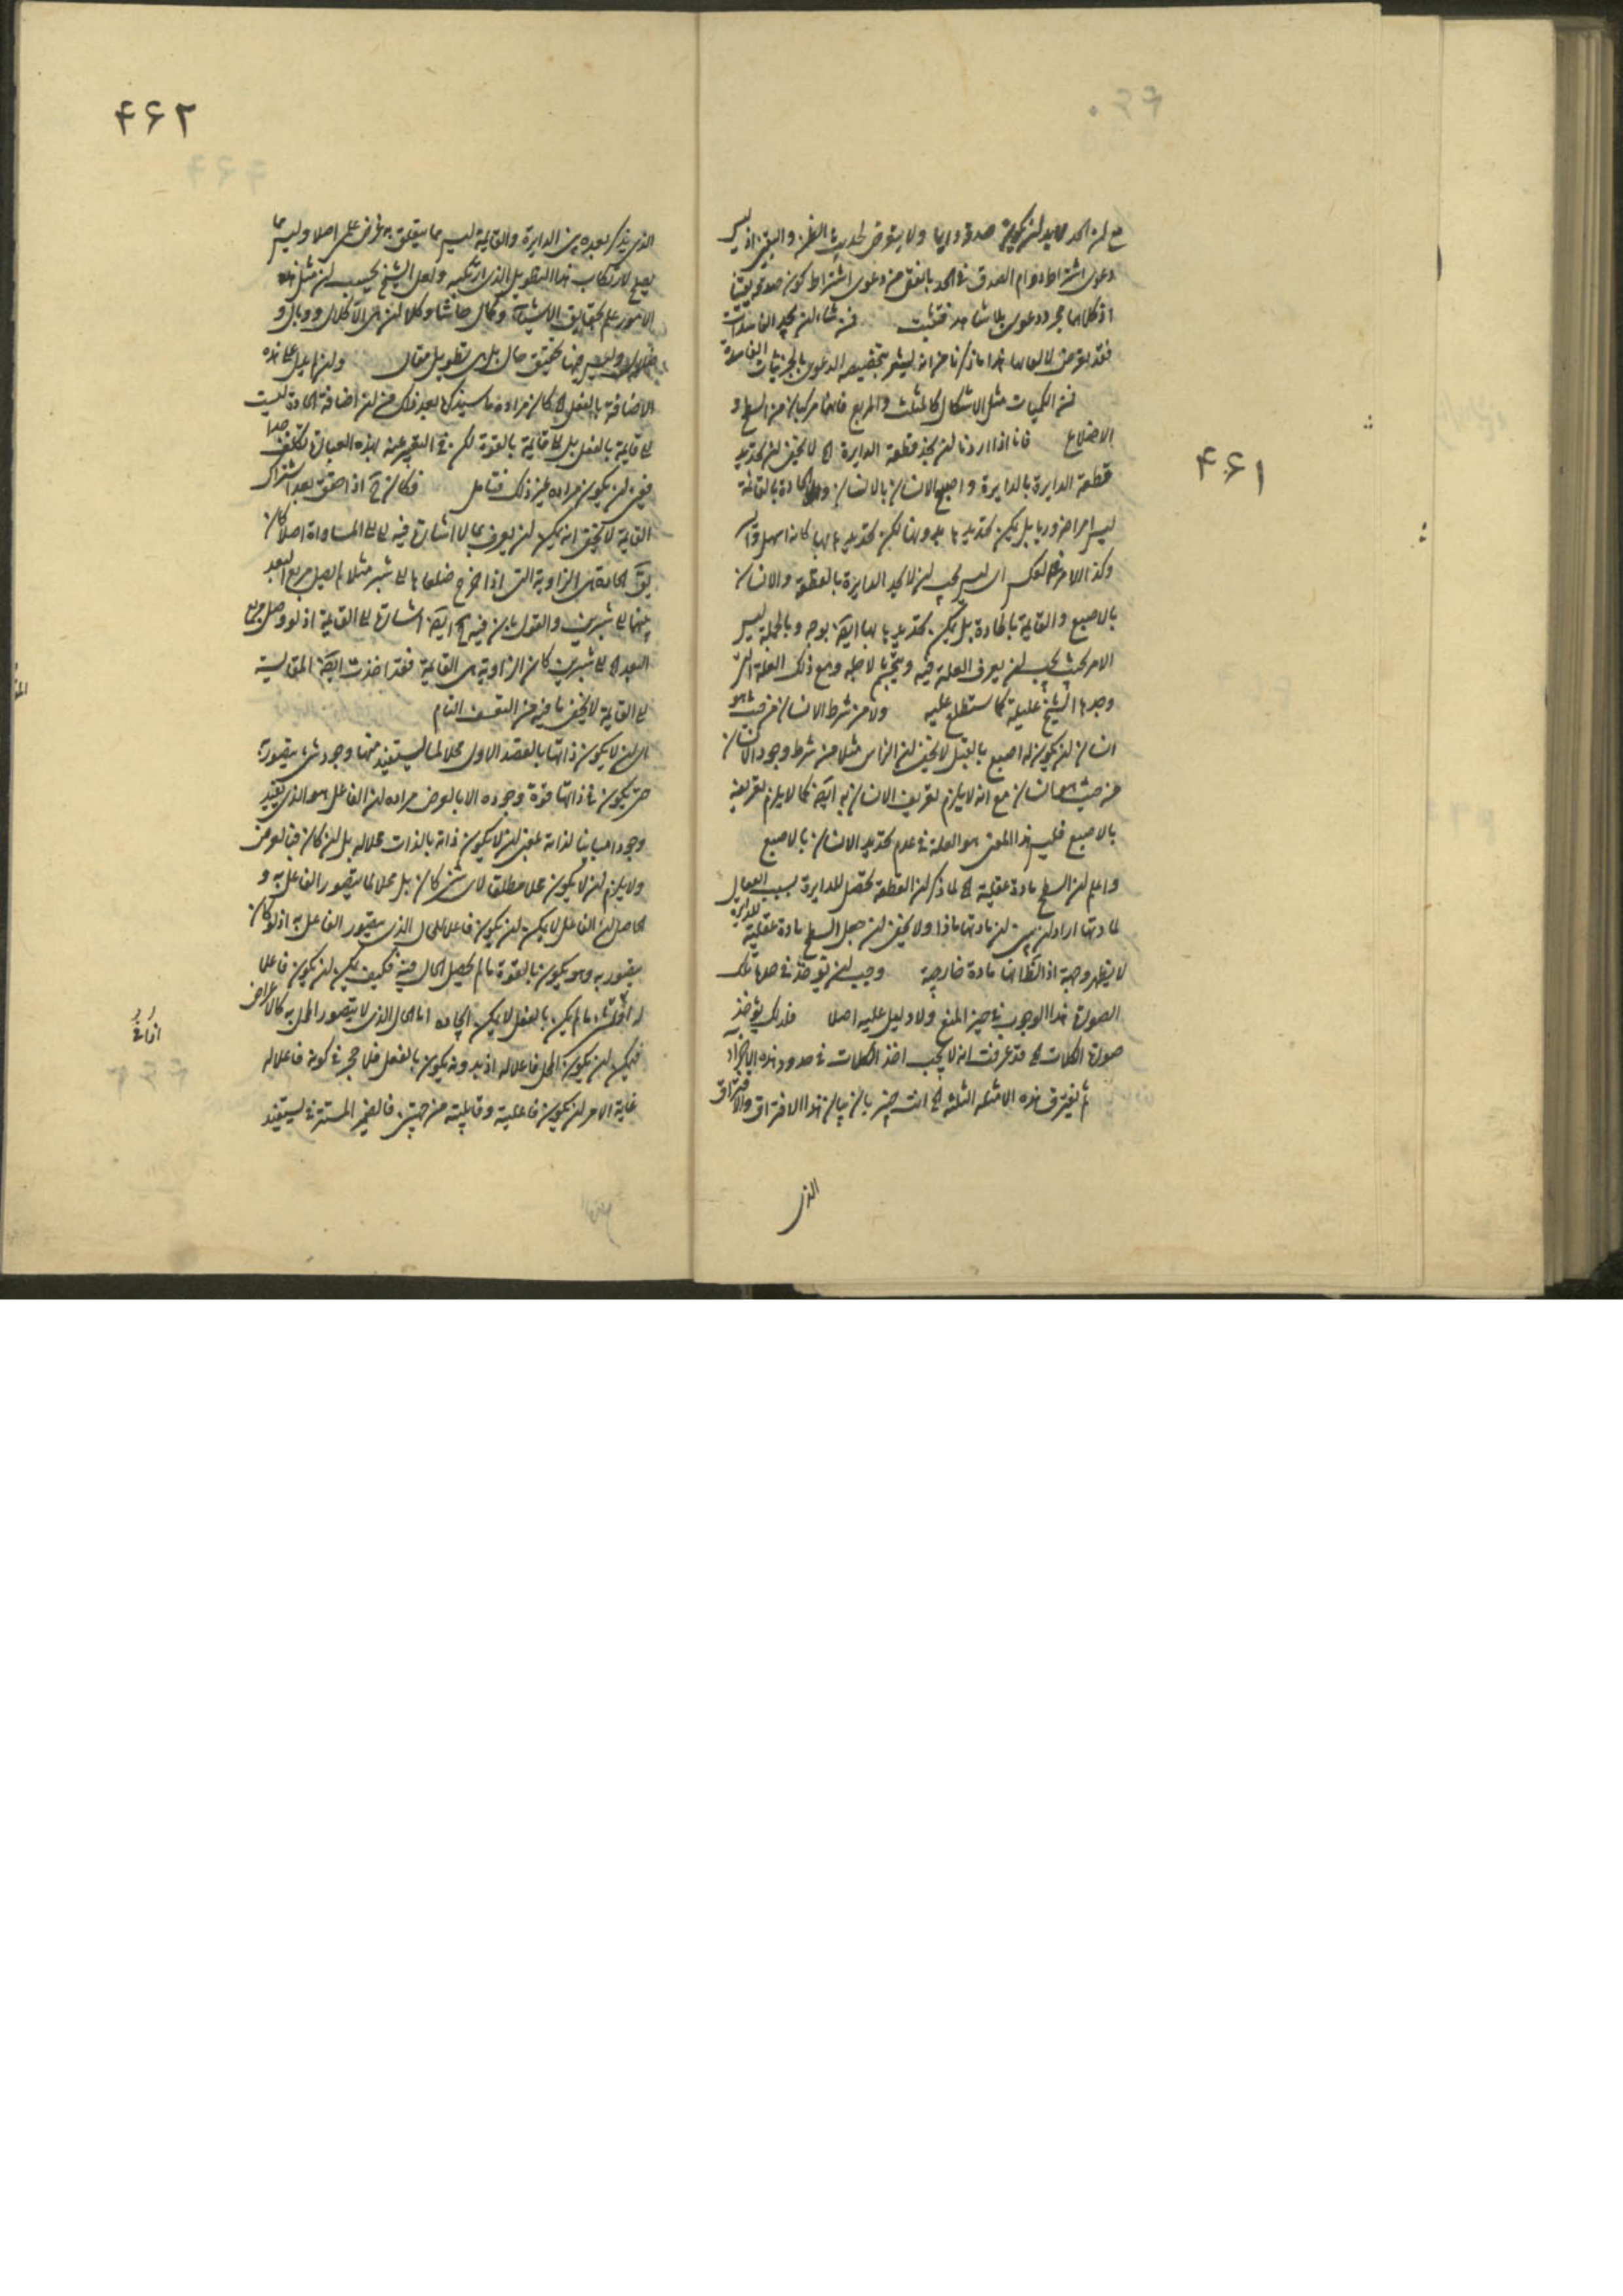 ۴۶۱
مع ان الحد لابد ان يكون صدقه دايما ولا يتعرض لحديث الظن واليقين اذ ليس
دعوى اشتراط دوام الصدق في الحد بالفعل من دعوى اشتراط كون صدقه يقينا
اذ كلاهما مجرد دعوى بلا شاهد فتثبت
فقد تعرض هذا ما ذكرنا من انه ليشعر بتخصيصه الدعوى بالجزئيات الفاسدة
من الكميات مثل الاشكال كالمثلث والمربع فانهما مركبان من السطح و
الاضلاع فانا اذا اردنا ان نحد قطعة الدايرة الخ لا يخفى ان تحديد
قطعة الدايرة بالدايرة واصبع الانسان بالانسان والحادة بالقائمة
ليس امرا ضروريا بل يمكن تحديدها بدونها لكن تحديدها بها كانه اسهل
وكذا الامر في العكس اي ليس يجب ان لا يحد الدايرة بالقطعة والانسان
بالاصبع والقايمة بالحادة بل يمكن تحديدها بها ايضا بوجه وبالجملة ليس
الامر بحيث يجب ان يعرف العلة فيه ويتجشم لاجله ومع ذلك العلة التي
وجدها الشيخ عليلة كما ستطلع عليه ولا من شرط الانسان من حيث هو
انسان ان يكون له اصبع بالفعل لا يخفى ان الراس مثلا من شرط وجود الانسان
من حيث هو انسان مع انه لا يلزم تعريف الانسان به ايضا كما لا يلزم تعريفه
بالاصبع فليس هذا المعنى هو العلة في عدم تحديد الانسان بالاصبع
واعلم ان السطح مادة عقلية الخ لما ذكر ان القطعة تحصل للدايرة بسبب انفعال
لمادتها اراد ان يبين ان مادتها ماذا ولا يخفى ان جعل السطح مادة عقلية للدايرة
لا يظهر وجهه اذ الظاهر انها مادة خارجية وجب ان توخذ في حدها تلك
الصورة هذا الوجوب في حيز المنع ولا دليل عليه اصلا فلذلك يؤخذ
صورة الكلات الخ قد عرفت انه لا يجب اخذ الكلات في حدود هذه الاجزاء
ثم تفترق هذه الامثلة الثلثة الخ انت خبير بان بيان هذا الافتراق والافتراق
الذي
۴۶۲
الذي يذكر بعده بين الدايرة والقايمة ليس مما يتعلق به غرض علمي اصلا وليس مما
يصلح لارتكاب هذا التطويل الذي ارتكبه ولعل الشيخ يحسب ان مثل هذه
الامور علم بحقايق الاشياء وكمال حاشا وكلا ان هي الا كلال ووبال و
وليس فيها تحقيق حال بل هي تطويل مقال
الاضافة بالفعل الخ كان مراده ما سيذكره بعد ذلك من ان اضافة الحادة ليست
الى قايمة بالفعل بل الى قايمة بالقوة لكن في التعبير عنه بهذه العبارة تكلف جدا
فيمكن ان يكون مراده غير ذلك فتامل
القايمة لا يخفى انه يمكن ان يعرف بما لا اشارة فيه الى المساواة اصلا كان
يقال الحادة هي الزاوية التي اذا اخرج ضلعاها الى شبر مثلا لم يصل مربع البعد
بينهما الى شبرين والقول بان فيه ايضا اشارة الى القايمة اذ لو وصل مربع
البعد الى شبرين كان الزاوية هي القايمة فقد اخذت ايضا المقايسة
الى القايمة لا يخفى ما فيه من التعسف التام
اي ان لا يكون ذاتها بالقصد الاول محلا لما يستفيد منها وجود شيء يتصور به
حتى يكون في ذاتها قوة وجوده الا بالعرض مراده ان الفاعل هو الذي يفيد
وجودا مباينا لذاته بمعنى ان لا يكون ذاته بالذات محلا له بل ان كان فبالعرض
ولا يلزم ان لا يكون محلا مطلقا لاي شيء كان بل محلا لما يتصور الفاعل به و
الحاصل ان الفاعل لا يمكن ان يكون فاعلا للحال الذي يتصور الفاعل به اذ لو كان
يتصور به وهو يكون بالقوة ما لم يحصل الحال فيه فكيف يمكن ان يكون فاعلا
له اذ الشيء ما لم يكن بالفعل لا يمكن ايجاده اما الحال الذي لا يتصور المحل به كالاعراض
فيمكن ان يكون المحل فاعلا له اذ بدونه يكون بالفعل فلا حجر في كونه فاعلا له
غاية الامر ان يكون فاعلية وقابلية من جهتين فالضمير المستتر في يستفيد